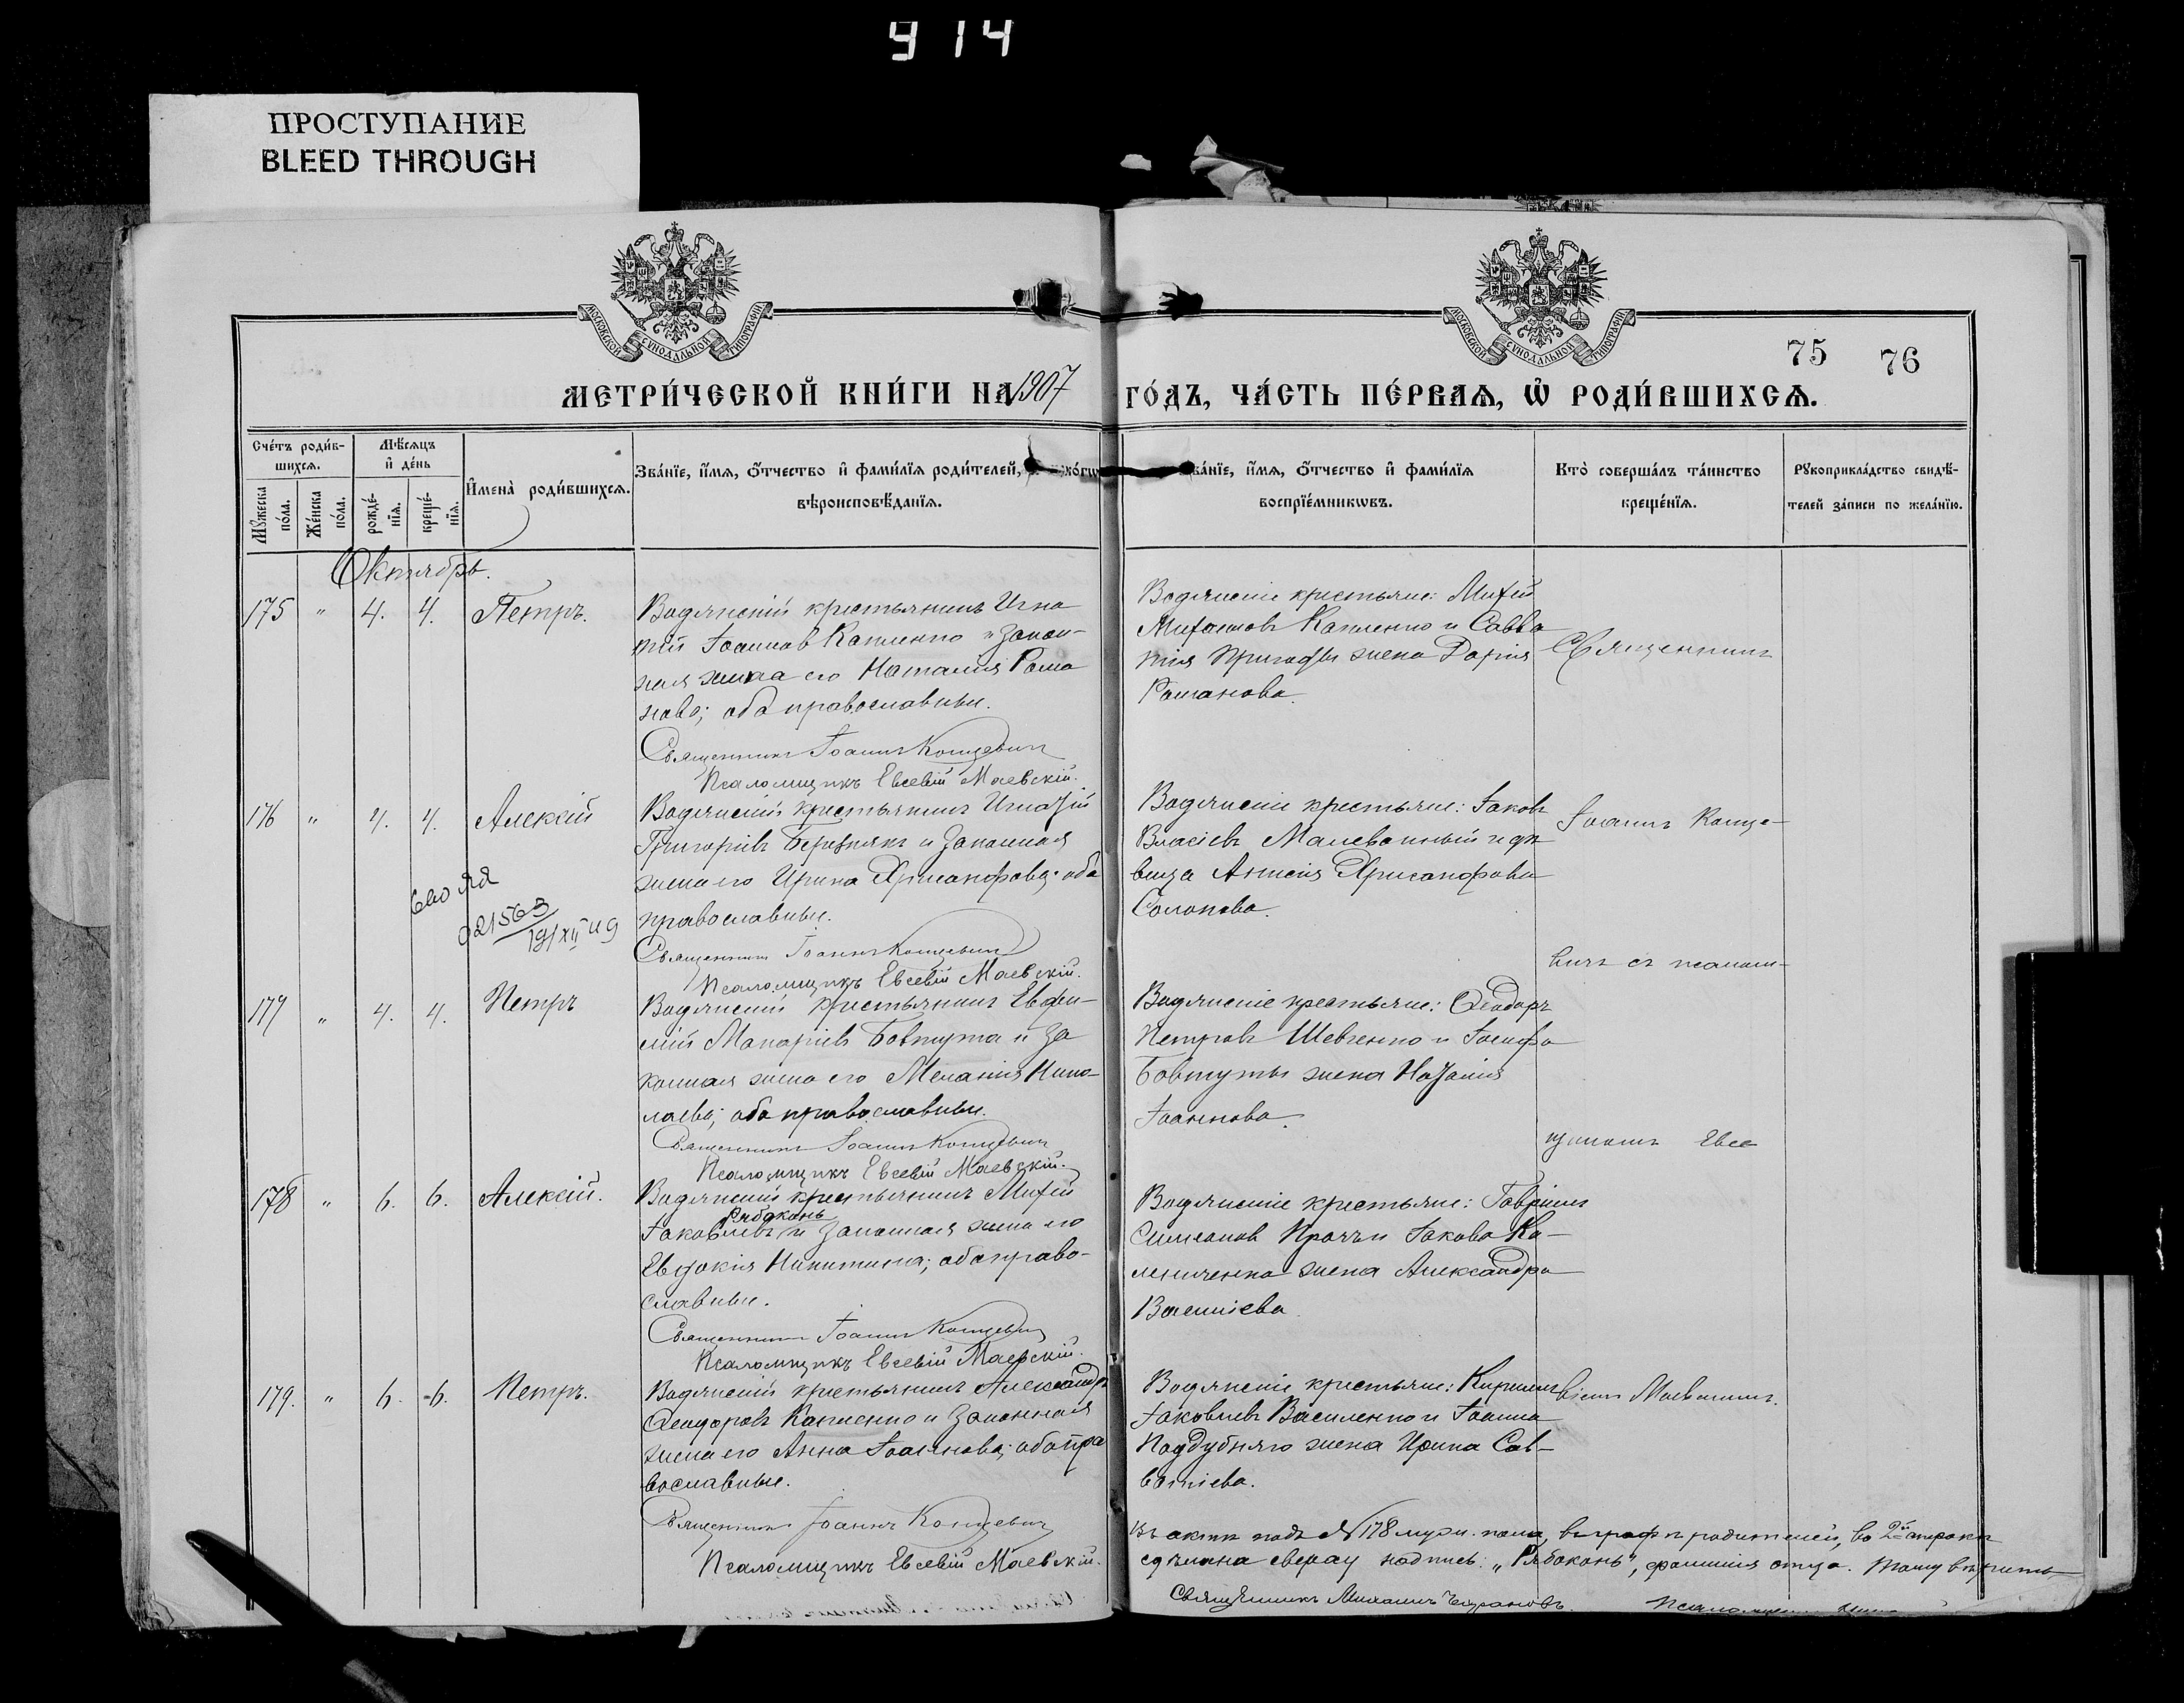 914
ПРОСТУПАНИЕ
BLEED THROUGH
МОСКОВСКОЙ СУНОДАЛЬНОЙ ТИПОГРАФІИ
МОСКОВСКОЙ СУНОДАЛЬНОЙ ТИПОГРАФІИ
75 76
МЕТРИ́ЧЕСКОЙ КНИ́ГИ НА 1907 ГО́ДЪ, ЧА́СТЬ ПЕ́РВАѦ, Ѡ РОДИ́ВШИХСѦ.
Сче́тъ роди́в-
шихсѧ.
Мѣ́сѧцъ
и де́нь
Мꙋ́жеска
по́ла.
Же́нска
по́ла.
рожде́-
нїѧ.
креще́-
нїѧ.
Имена̀ роди́вшихсѧ.
Зва́нїе, и́мѧ, ѻ́тчество и фами́лїѧ роди́телей,
вѣроисповѣ́данїѧ.
ва́нїе, и́мѧ, ѻ́тчество и фами́лїѧ
воспрїе́мникѡвъ.
Кто̀ соверша́лъ та́инство
креще́нїѧ.
Рꙋкоприкла́дство свидѣ́-
телей за́писи по жела́нїю.
Октябрь.
175 " 4. 4. Петръ.
Водянскій крестьянинъ Игна
тій Іоанновъ Капленко и закон-
ная жена его Наталія Рома
нова; оба православны.
Священникъ Іоаннъ Концевич
Псаломщикъ Евсевій Маевскій.
Водянскіе крестьяне: Михей
Митаиловъ Капленко и Савва
тія Пригоды жена Дарія
Романова.
Священникъ
176 " 4. 4. Алексій
Водянскій крестьянинъ Игнатій
Григоріевъ Березнякъ и законная
жена его Ирина Хрисанфова; оба
православны.
Священникъ Іоаннъ Концевич
Псаломщикъ Евсевій Маевскій.
Водянскіе крестьяне: Іаковъ
Власіевъ Малеванный и дѣ
вица Анисія Хрисанфова
Солонова.
Іоаннъ Конце-
021563
вичъ съ псалом-
177 " 4. 4. Петръ
Водянскій крестьянинъ Евфи-
мій Макаріевъ Бовтута и за
конная жена его Меланія Нико-
лаева; оба православны.
Священникъ Іоаннъ Концевич
Псаломщикъ Евсевій Маевскій.
Водянскіе крестьяне: Ѳеодоръ
Петровъ Шевченко и Іосифа
Бовтуты жена Наталія
Іоаннова.
щикомъ Евсе
178 " 6. 6. Алексій.
Водянскій крестьянинъ Михей
Рябоконь
Іаковлевъ и законная жена его
Евдокія Никитина; оба право-
славны.
Священникъ Іоаннъ Концевич
Псаломщикъ Евсевій Маевскій.
Водянскіе крестьяне: Гавріилъ
Симеоновъ Прачъ и Іакова Ка-
мениченка жена Александра
Василіева.
179. " 6. 6. Петръ.
Водянскій крестьянинъ Александръ
Ѳеодоровъ Капленко и законная
жена его Анна Іоаннова; оба пра
вославны.
Священникъ Іоаннъ Концевич
Псаломщикъ Евсевій Маевскій.
Водянскіе крестьяне: Кириллъ
Іаковлевъ Василенко и Іоанна
Поддубняго жена Ирина Сав-
ватіева.
віемъ Маевскимъ.
Въ актѣ подъ № 178 муж. пола, въ графѣ родителей, во 2й строкѣ
сдѣлана сверху надпись: „Рябоконь", фамилія отца. Тому вѣрить
Священникъ Михаилъ